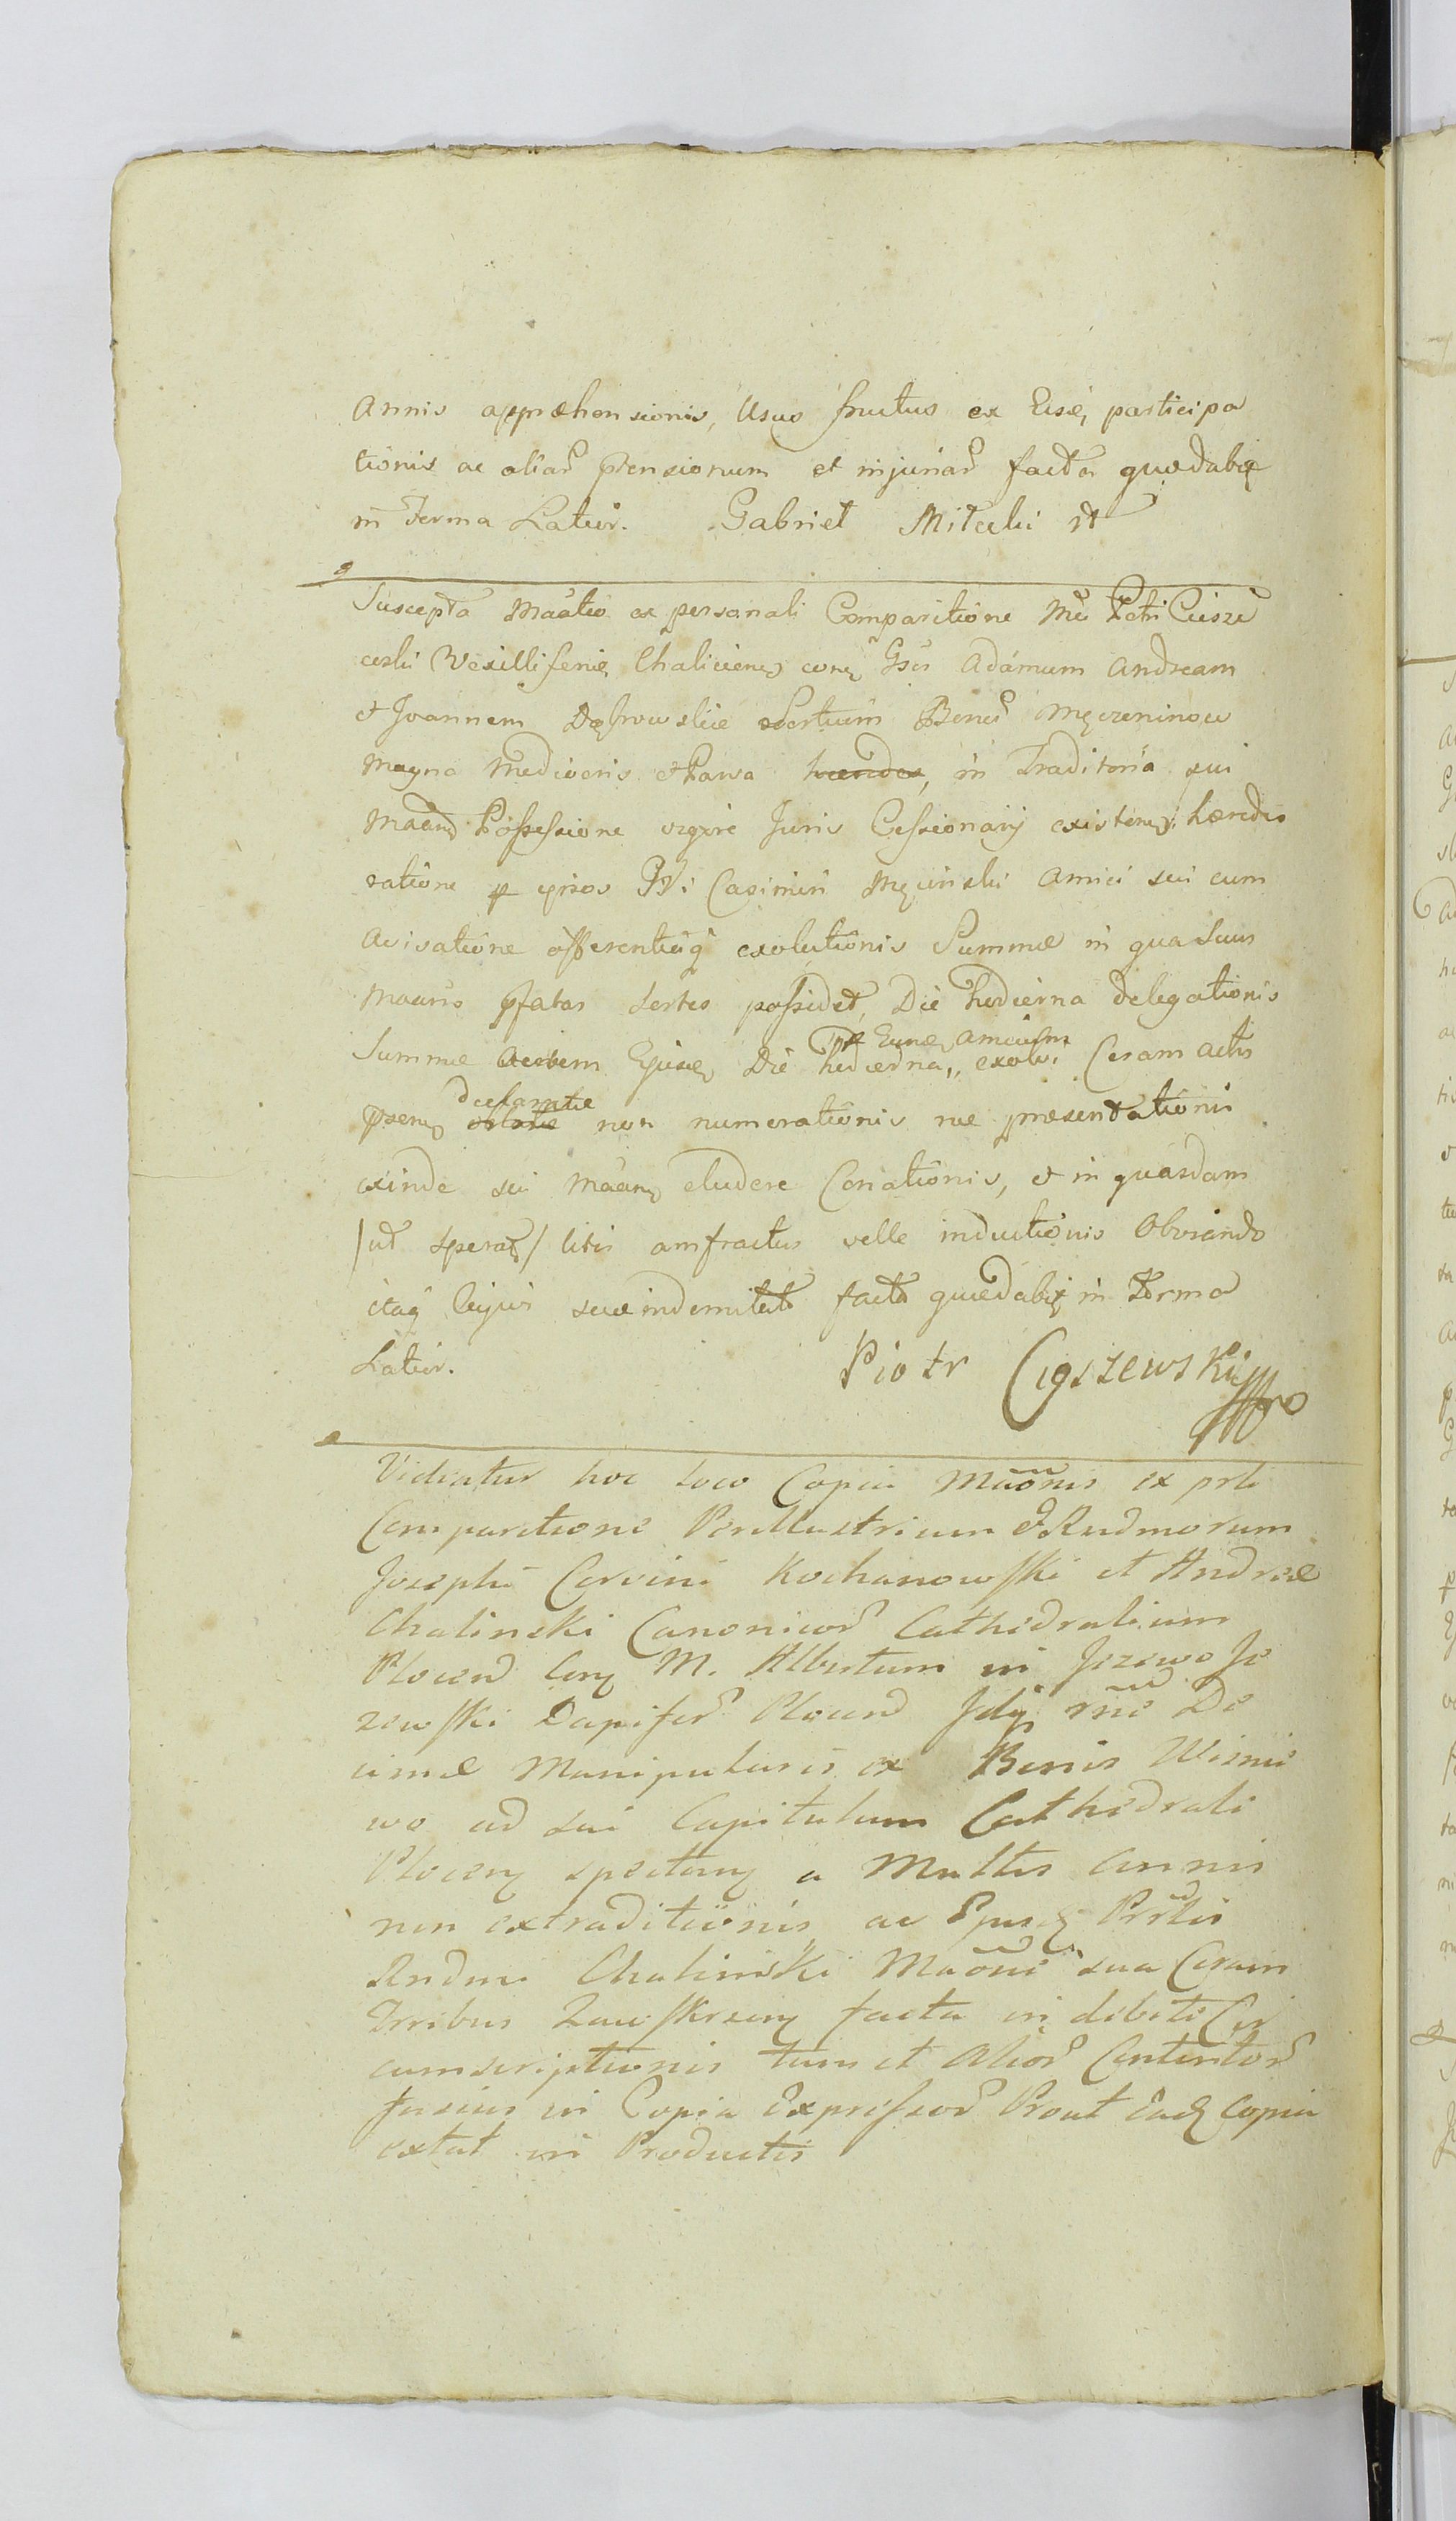 Annis appræhensionis, Usus fructus ex Eisdē participa
tionis ac aliar̃ p̃tensionum et injuriar̃ facta quædabitę
in Forma Latior. Gabriel Mitecki
Suscepta Maãtio ex personali Comparitione Mci Petri Ciesze
cski Vexilliferię Chalicienę conę Gsos Adamum Andream
et Joannem Dąbrowskie Sortium Bonor̃ Męczeninow
Magno Mediocris et Parva hæredes, in Traditoria sui
Maãnę Possessione vigore Juris Cessionarij existenę, hæredes
ratione p ipsos Gsi Casimiri Męcinski Amici sui cum
avisatione offerentiæq̃ exolutionis Summæ in qua Suus
Maans pfatas Sortes possidet, Die hodierna delegationis
Summæ autem Ejusdę Die hodierna,, exolvi Coram actis
p Eundę amicum
p̃senę oblatæ non numerationis ne præsentationis
declaratæ
exinde sui Maãnę eludere Conationis, et in quasdam
/ut sperat/ litis amfractus velle inductionis Obviando
itaq̃ Cujus suæ indemnitati facta quædabitę in Forma
Latior.
Piotr Cięszewski
Videatur hoc loco Copia Maõnis ex prli
Comparitione Perillustrium et Rndmorum
Josephi Corvini Kochanowski et Andreæ
Chalinski Canonicor̃ Cathedralium
Plocen Conę M. Albertum in Jezewo Je
zewski Dapifer̃ Plocen Idq̃ rne De
cimæ Manipularis ex Bonis Wisnie
wo ad sui Capitulum Cathedrali
Plocenę spectanę a Multis annis
non extraditionis, ac Ejusdę Prlis
Rndmi Chalinski Maõne sua Coram
Trribus Zawskrzenę facta in debite Cir
cumscriptionis tum et Alior̃ Contentor̃
fusius in Copia Expressor̃ Prout Eadę Copia
extat in Productis